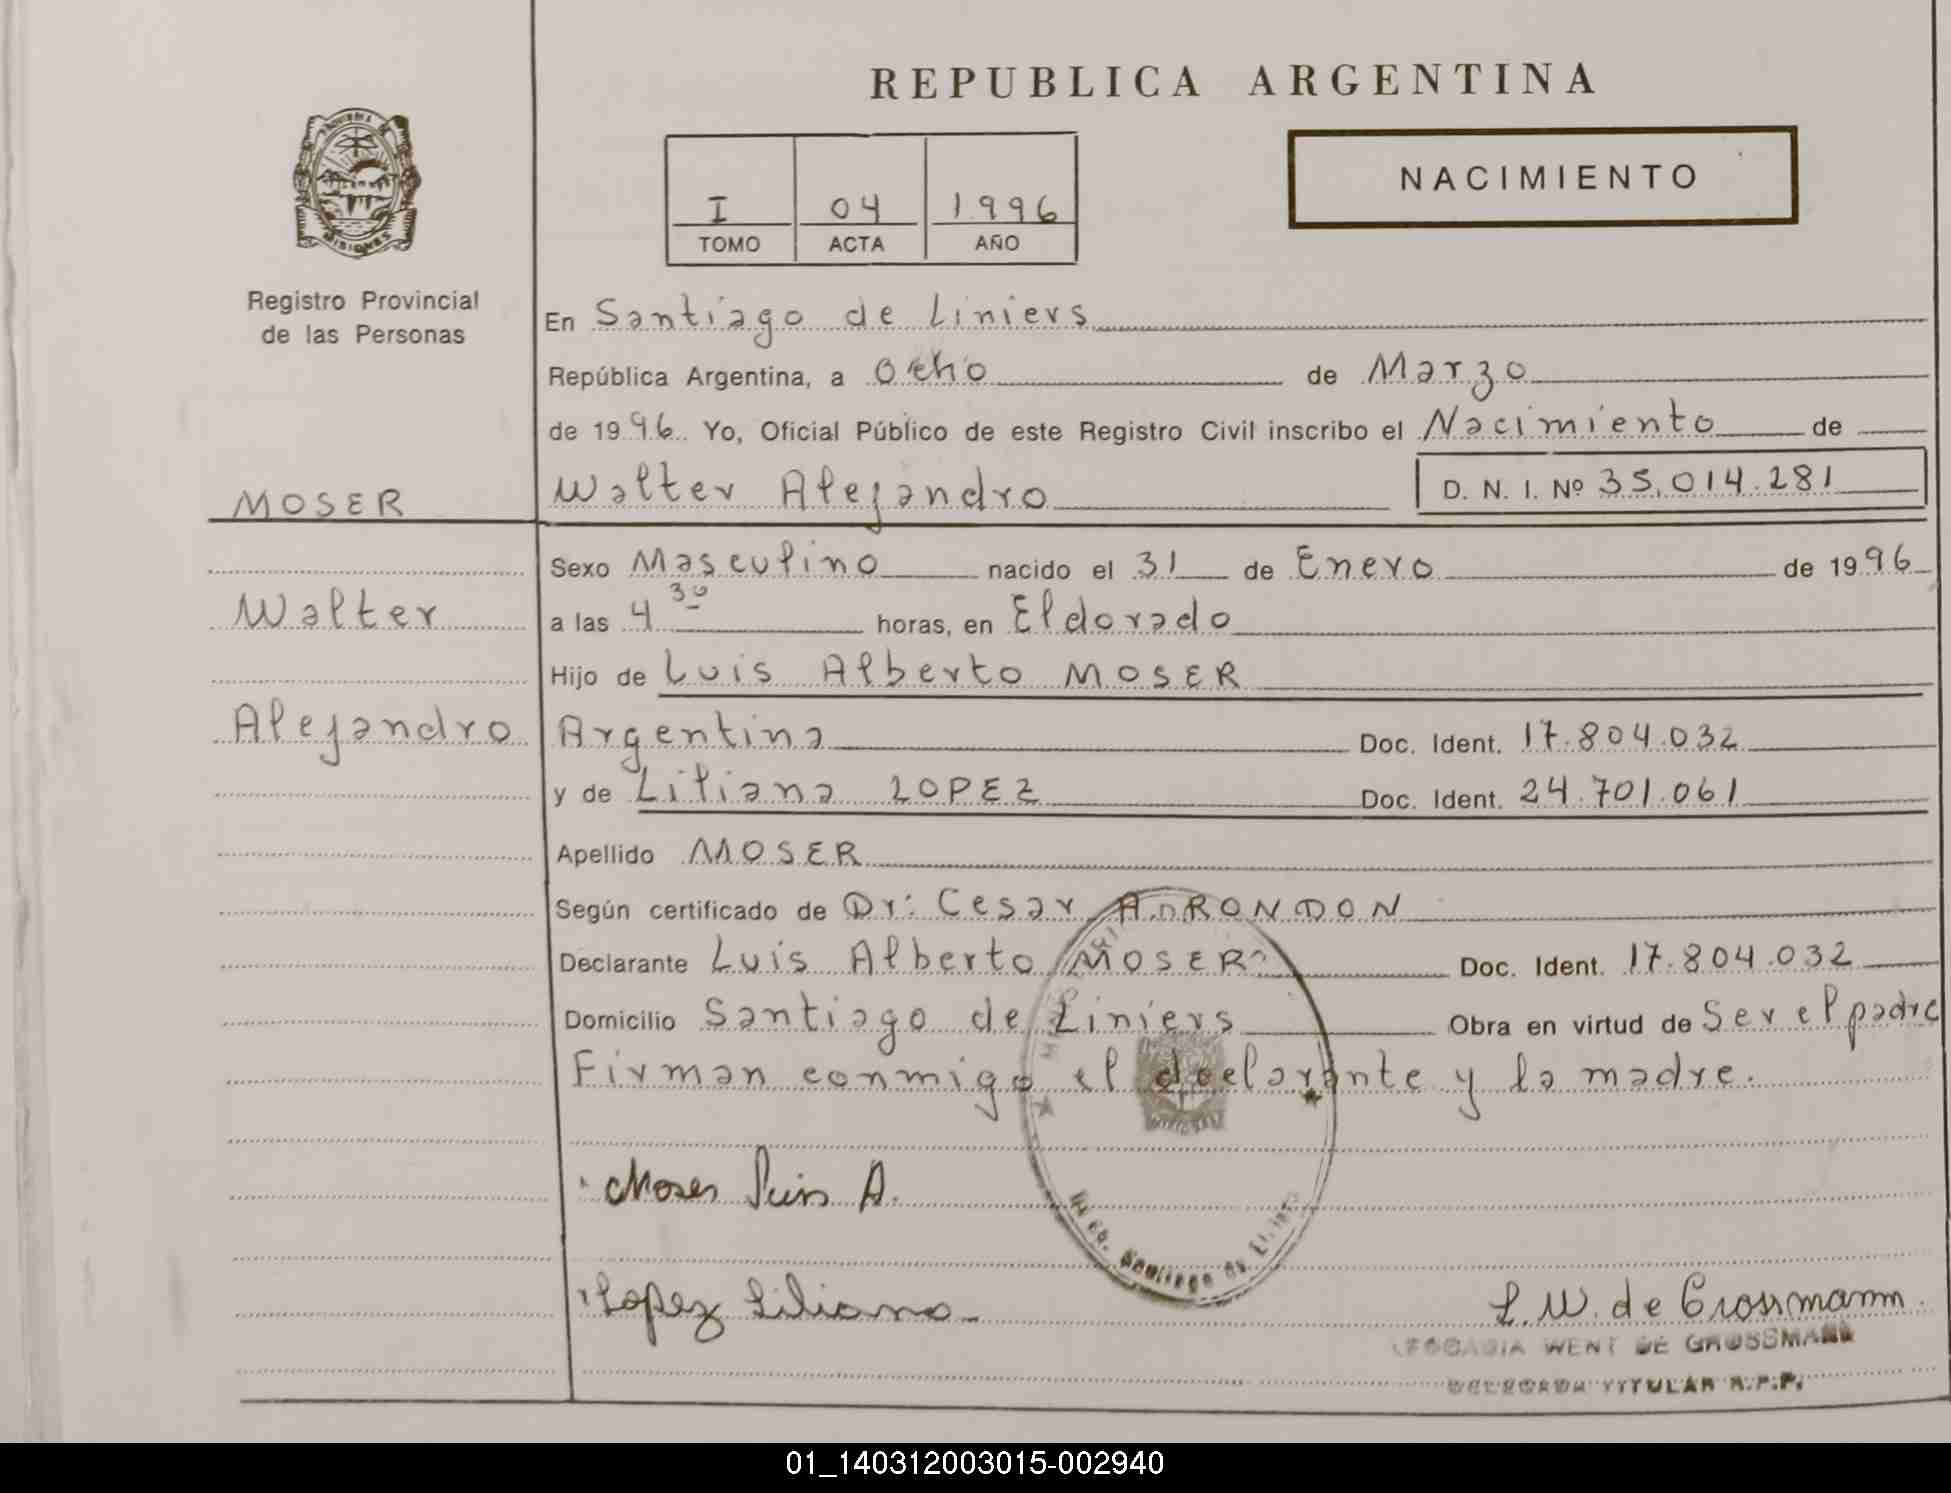 REPUBLICA ARGENTINA
PROVINCIA DE
MISIONES
Registro Provincial
de las Personas
I 04 1996
TOMO ACTA AÑO
NACIMIENTO
En Santiago de Liniers
República Argentina, a ocho de Marzo
de 1996. Yo, Oficial Público de este Registro Civil inscribo el Nacimiento de
MOSER
Walter Alejandro D. N. I. Nº 35.014.281
Sexo Masculino nacido el 31 de Enero de 1996
Walter
a las 4 30 horas, en Eldorado
Hijo de Luis Alberto MOSER
Alejandro
Argentina Doc. Ident. 17.804.032
y de Liliana LOPEZ Doc. Ident. 24.701.061
Apellido MOSER
Según certificado de Dr: Cesar RONDON
Declarante Luis Alberto MOSER Doc. Ident. 17.804.032
Domicilio Santiago de Liniers Obra en virtud de Ser el padre
Firman conmigo el declarante y la madre.
Moser Luis A.
Santiago de
Lopez Liliana
L. W. de Grossmann
WENT DE GROSSMANN
DELEGADA TITULAR R.P.P.
01_140312003015-002940